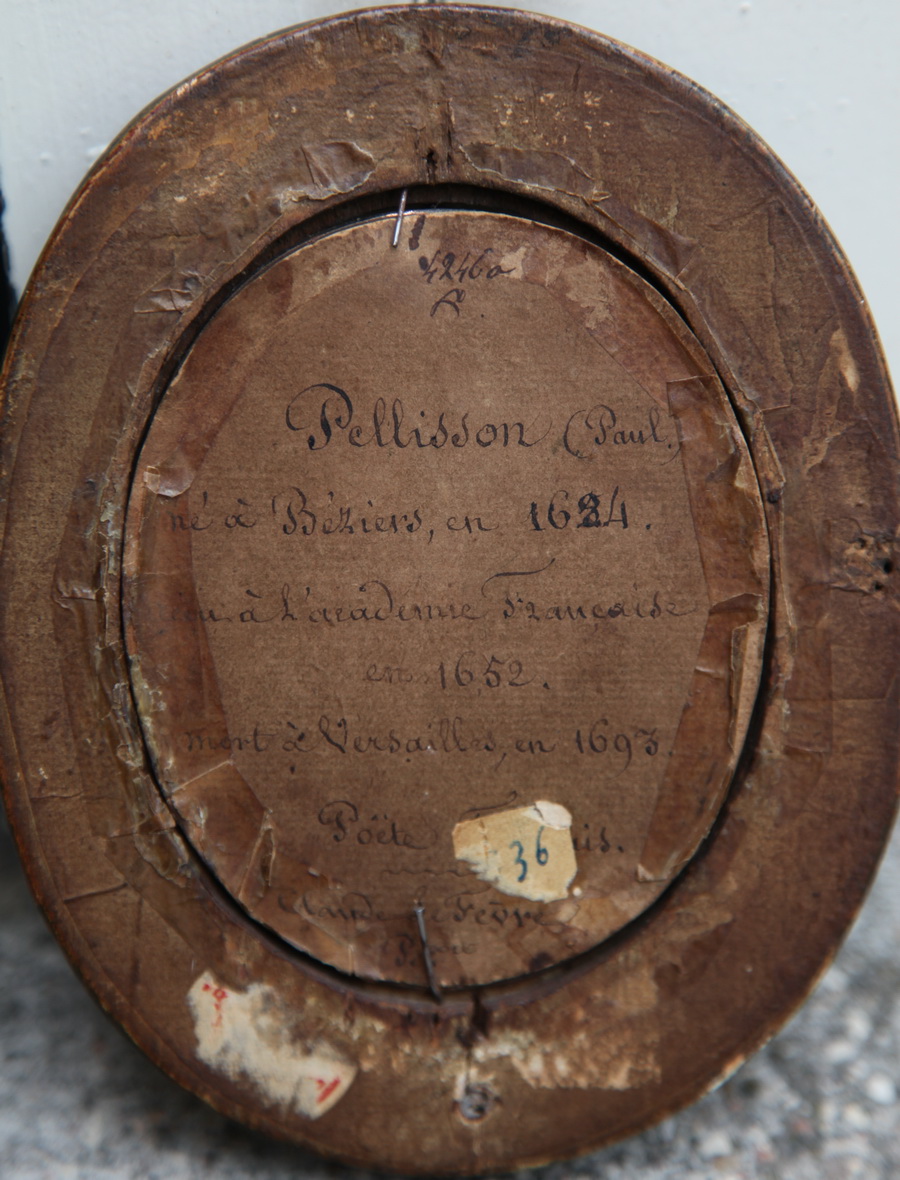 4246a
Pellisson (Paul)
né à Béziers, en 1624.
à L'academie Française
en 1652.
mort à Versailles, en 1693.
Poëte
36
Claude Fevre